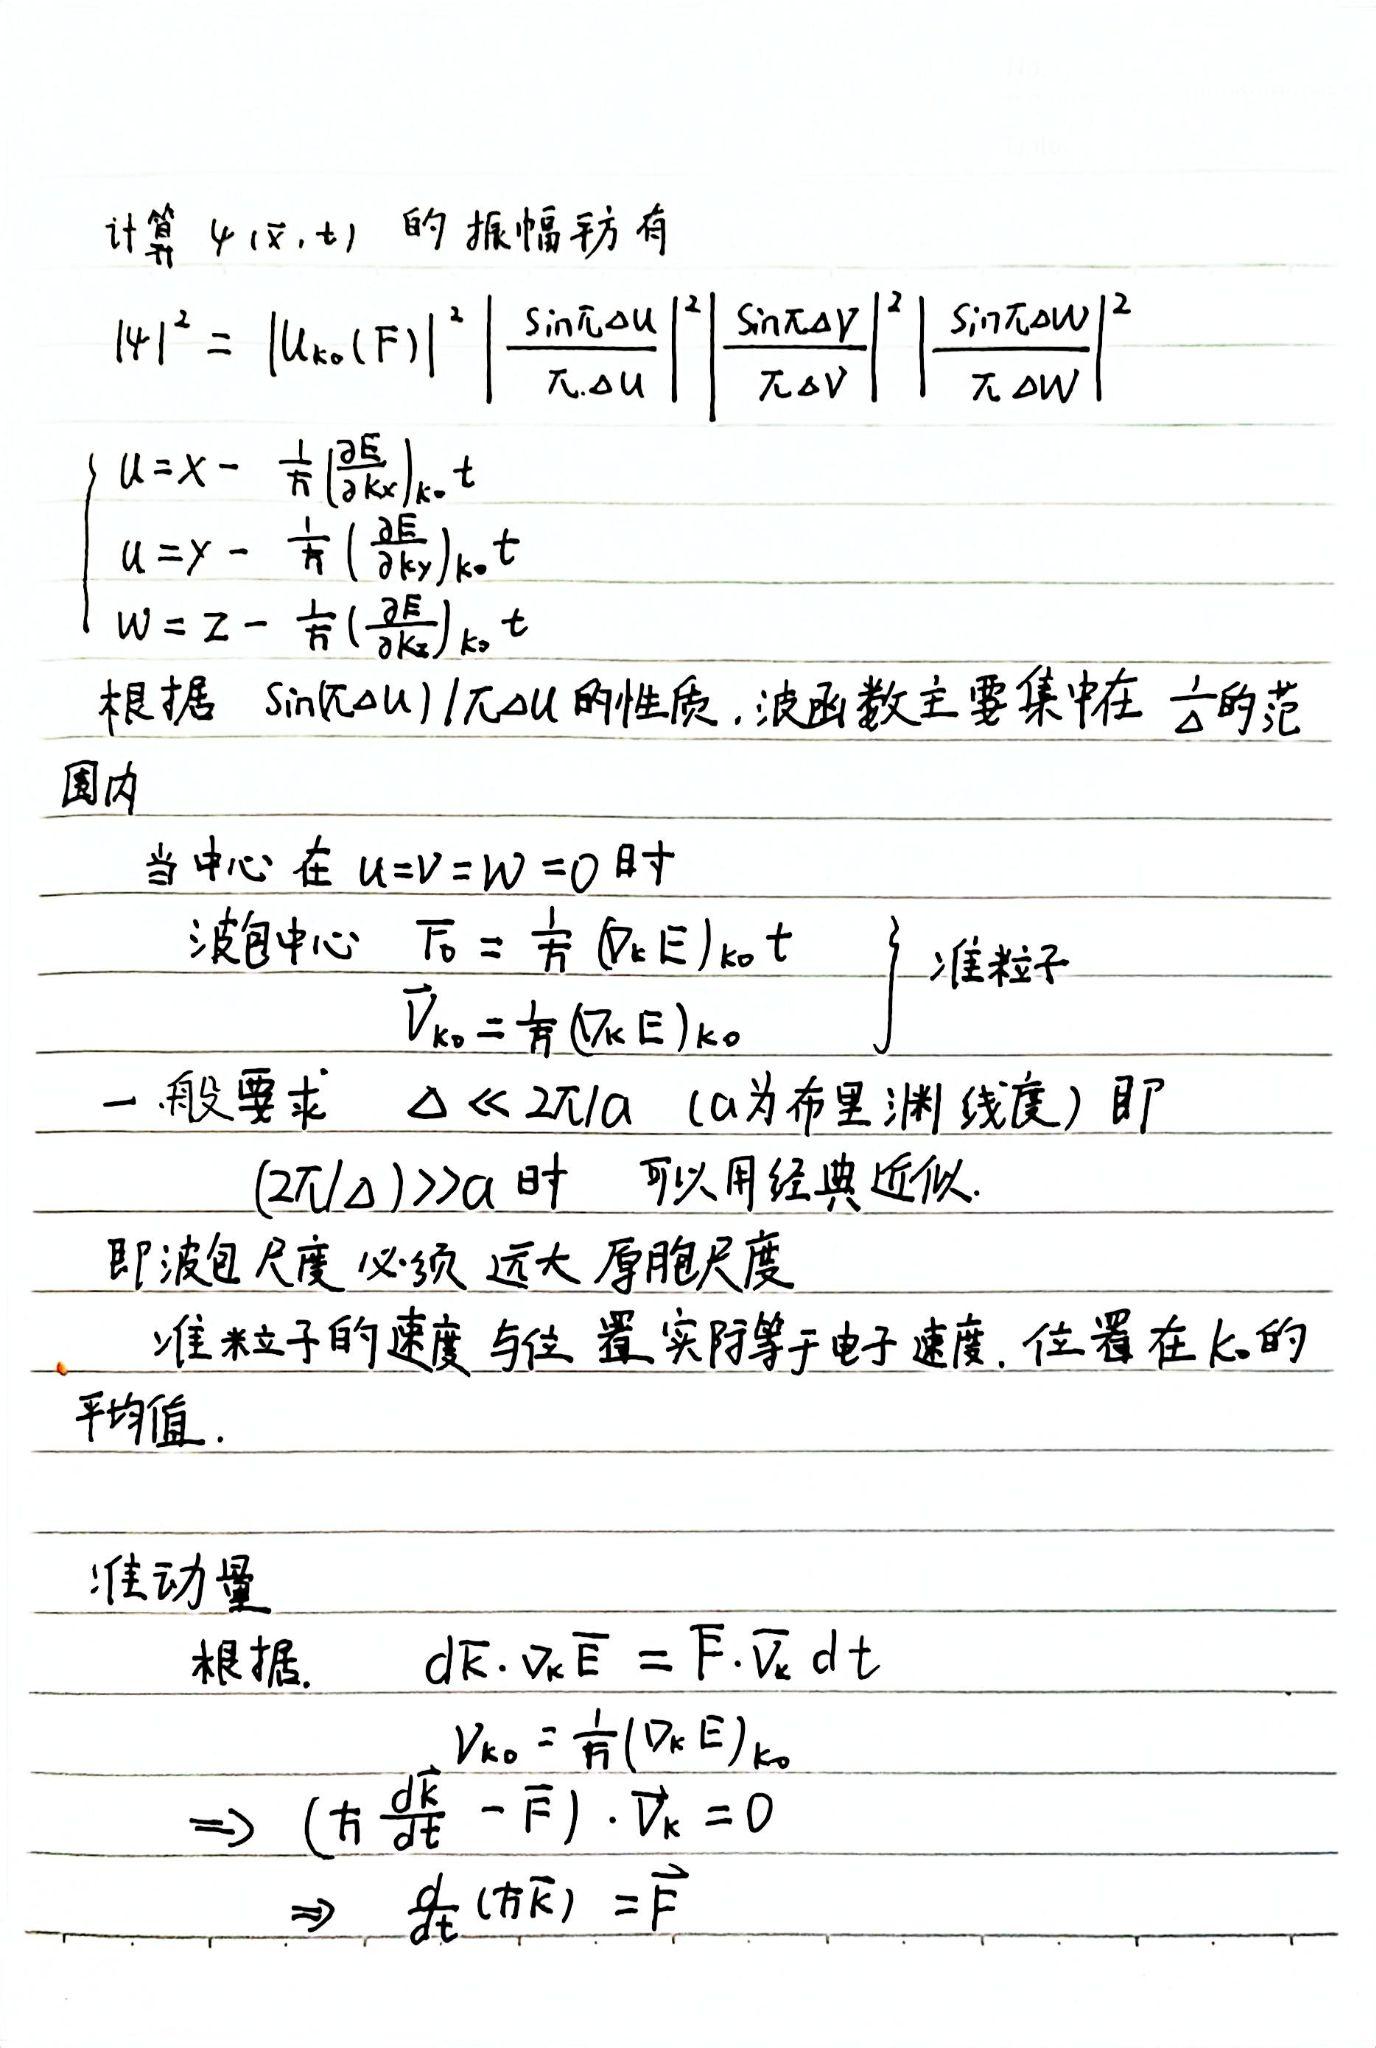 计算 ψ(x̄,t) 的振幅平方有
|ψ|² = |U_{k₀}(r̄)|² |sinπΔu / π.Δu|² |sinπΔV / πΔV|² |sinπΔW / πΔW|²
{ u = x - 1/ħ (∂E/∂k_x)_{k₀} t
u = y - 1/ħ (∂E/∂k_y)_{k₀} t
w = z - 1/ħ (∂E/∂k_z)_{k₀} t
根据 sin(πΔu)/πΔu 的性质.波函数主要集中在 1/Δ 的范
围内
当中心在 u=v=w=0时
波包中心 r̄₀ = 1/ħ (∇ₖE)_{k₀} t } 准粒子
V⃗_{k₀} = 1/ħ (∇ₖE)_{k₀}
一般要求 Δ ≪ 2π/a (a为布里渊线度) 即
(2π/Δ)>>a 时 可以用经典近似.
即波包尺度必须远大原胞尺度
准粒子的速度与位置实际等于电子速度.位置在k₀的
平均值.
准动量
根据. dk̄·∇ₖĒ = F̄·V̄ₖ dt
V_{k₀} = 1/ħ (∇ₖE)_{k₀}
⇒ (ħ dk⃗/dt - F̄)·V⃗ₖ = 0
⇒ d/dt (ħk̄) = F⃗